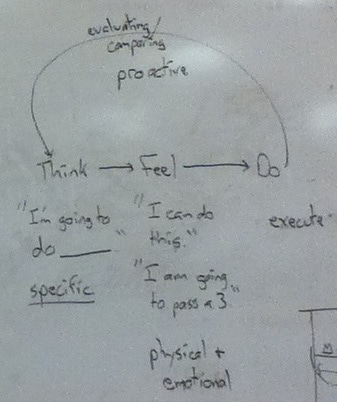 evaluating/
comparing
proactive
Think → Feel → Do
"I'm going to
do ____"
specific
"I can do
this."
"I am going
to pass a 3"
physical +
emotional
execute